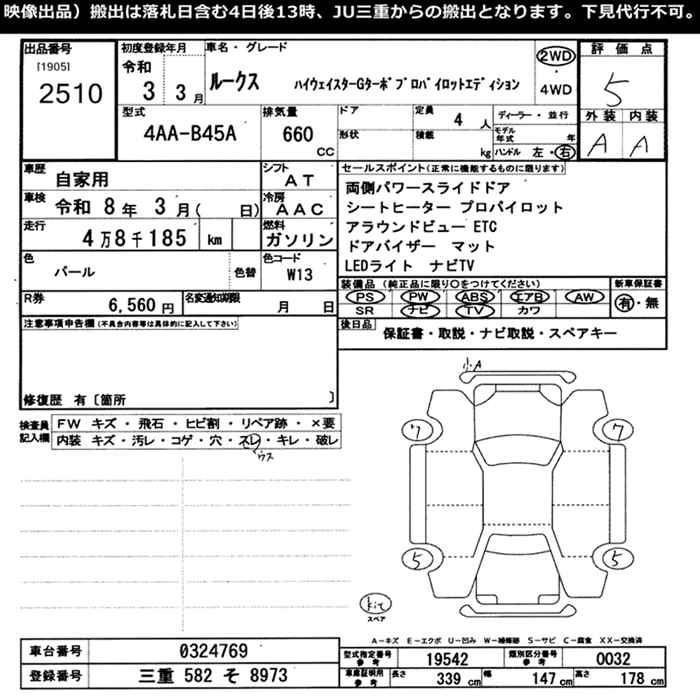 映像出品）搬出は落札日含む4日後13時、JU三重からの搬出となります。下見代行不可。
出品番号
[1905]
2510
初度登録年月
令和
3 3月
車名・グレード
ルークス ハイウェイスターGターボ プロパイロットエディション
2WD
4WD
評価点
5
型式
4AA-B45A
排気量
660 CC
ドア
形状
定員
4 人
積載
kg
ディーラー・並行
モデル年式 年
ハンドル 左・右
外装 内装
A A
車歴
自家用
シフト
AT
車検
令和 8年 3月( 日)
冷房
AAC
走行
4万8千185 km
燃料
ガソリン
色
パール
色替
色コード
W13
R券
6,560 円
名変通知期限
月 日
セールスポイント(正常に機能するものに限ります)
両側パワースライドドア
シートヒーター プロパイロット
アラウンドビュー ETC
ドアバイザー マット
LEDライト ナビTV
装備品 (純正品に限り○をつけてください)
PS PW ABS エアB AW
SR ナビ TV カワ
新車保証書
有・無
後日品
保証書・取説・ナビ取説・スペアキー
注意事項申告欄 (不具合内容等は具体的に記入して下さい)
修復歴 有〔箇所 〕
検査員
記入欄
FW キズ・飛石・ヒビ割・リペア跡・×要
内装 キズ・汚レ・コゲ・穴・スレ・キレ・破レ
ウス
小A
7
7
5
5
kit
スペア
A－キズ E－エクボ U－凹み W－補修跡 S－サビ C－腐食 XX－交換済
車台番号
0324769
登録番号
三重 582 そ 8973
型式指定番号
参考
19542
類別区分番号
参考
0032
車庫証明用
参考
長さ 339 cm
幅 147 cm
高さ 178 cm